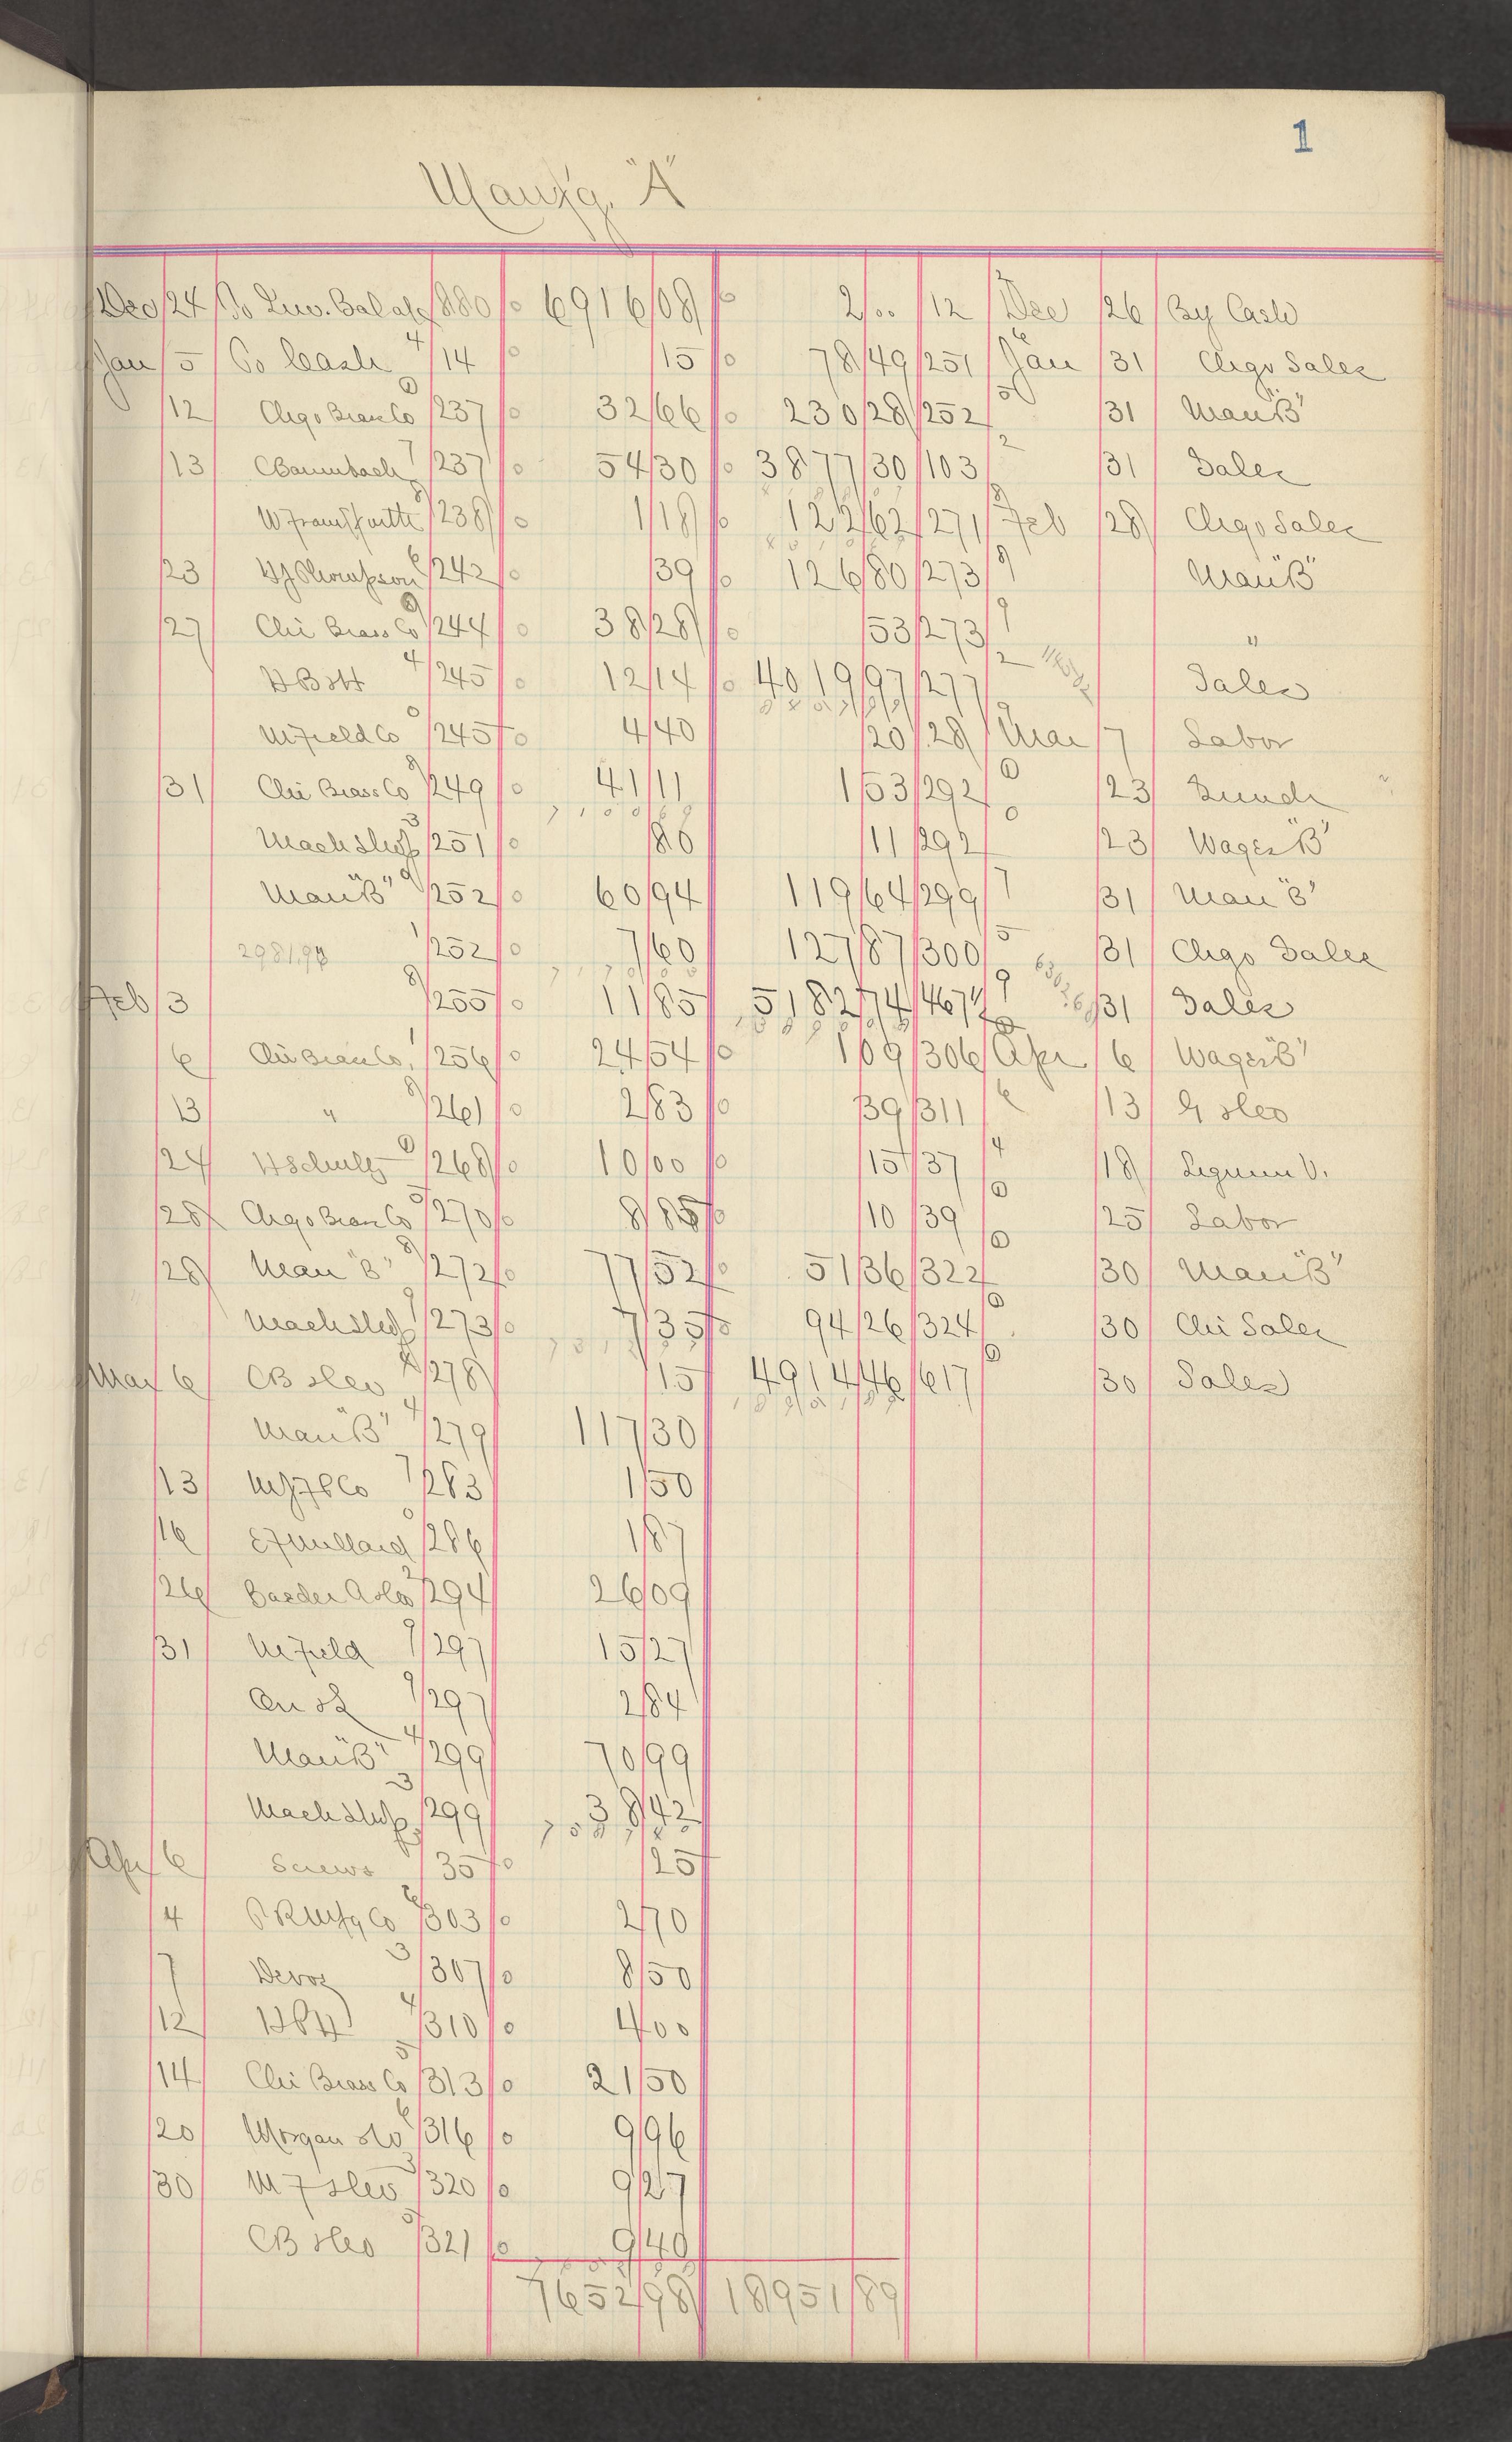 1
Manfg. "A"
Dec 24 To Inv. Bal a/c 880 6916 08 2 00 12 Dec 26 By Cash
Jan 5 To Cash 14 15 78 49 251 Jan 31 Chgo Sales
12 Chgo Brass Co 237 32 66 230 28 252 31 Man "B"
13 C Baumbach 237 54 30 3877 30 103 31 Sales
W Frankfurth 238 1 18 122 62 271 Feb 28 Chgo Sales
23 Thompson 242 39 126 80 273 Man "B"
27 Chi Brass Co 244 38 28 53 273 "
HBH 245 12 14 4019 97 277 Sales
M Field Co 245 4 40 20 28 Mar 7 Labor
31 Chi Brass Co 249 41 11 1 53 292 23
Mach Shop 251 86 11 292 23 Wages "B"
Man "B" 252 60 94 119 64 299 31 Man "B"
2981.94 252 7 60 127 87 300 31 Chgo Sales
Feb 3 255 11 85 5182 74 467 31 Sales
6 Chi Brass Co. 256 24 54 1 09 306 Apr 6 Wages "B"
13 " 261 2 83 39 311 13
24 H Schultz 268 10 00 15 37 18 Lignum V.
28 Chgo Brass Co 270 8 85 10 39 25 Labor
28 Man "B" 272 77 52 51 36 322 30 Man "B"
Mach Shop 273 7 35 94 26 324 30 Chi Sales
Mar 6 CB 278 15 4914 46 617 30 Sales
Man "B" 279 117 30
13 Co 283 1 50
16 Willard 286 1 87
26 Baeder 294 26 09
31 M Field 297 15 27
297 2 84
Man "B" 299 70 99
Mach Shop 299 38 42
Apr 6 Screws 35 25
4 Mfg Co 303 2 70
7 Devoe 307 8 50
12 310 4 00
14 Chi Brass Co 313 21 50
20 Morgan 316 9 96
30 M F 320 9 27
CB 321 9 40
7652 98 18951 89